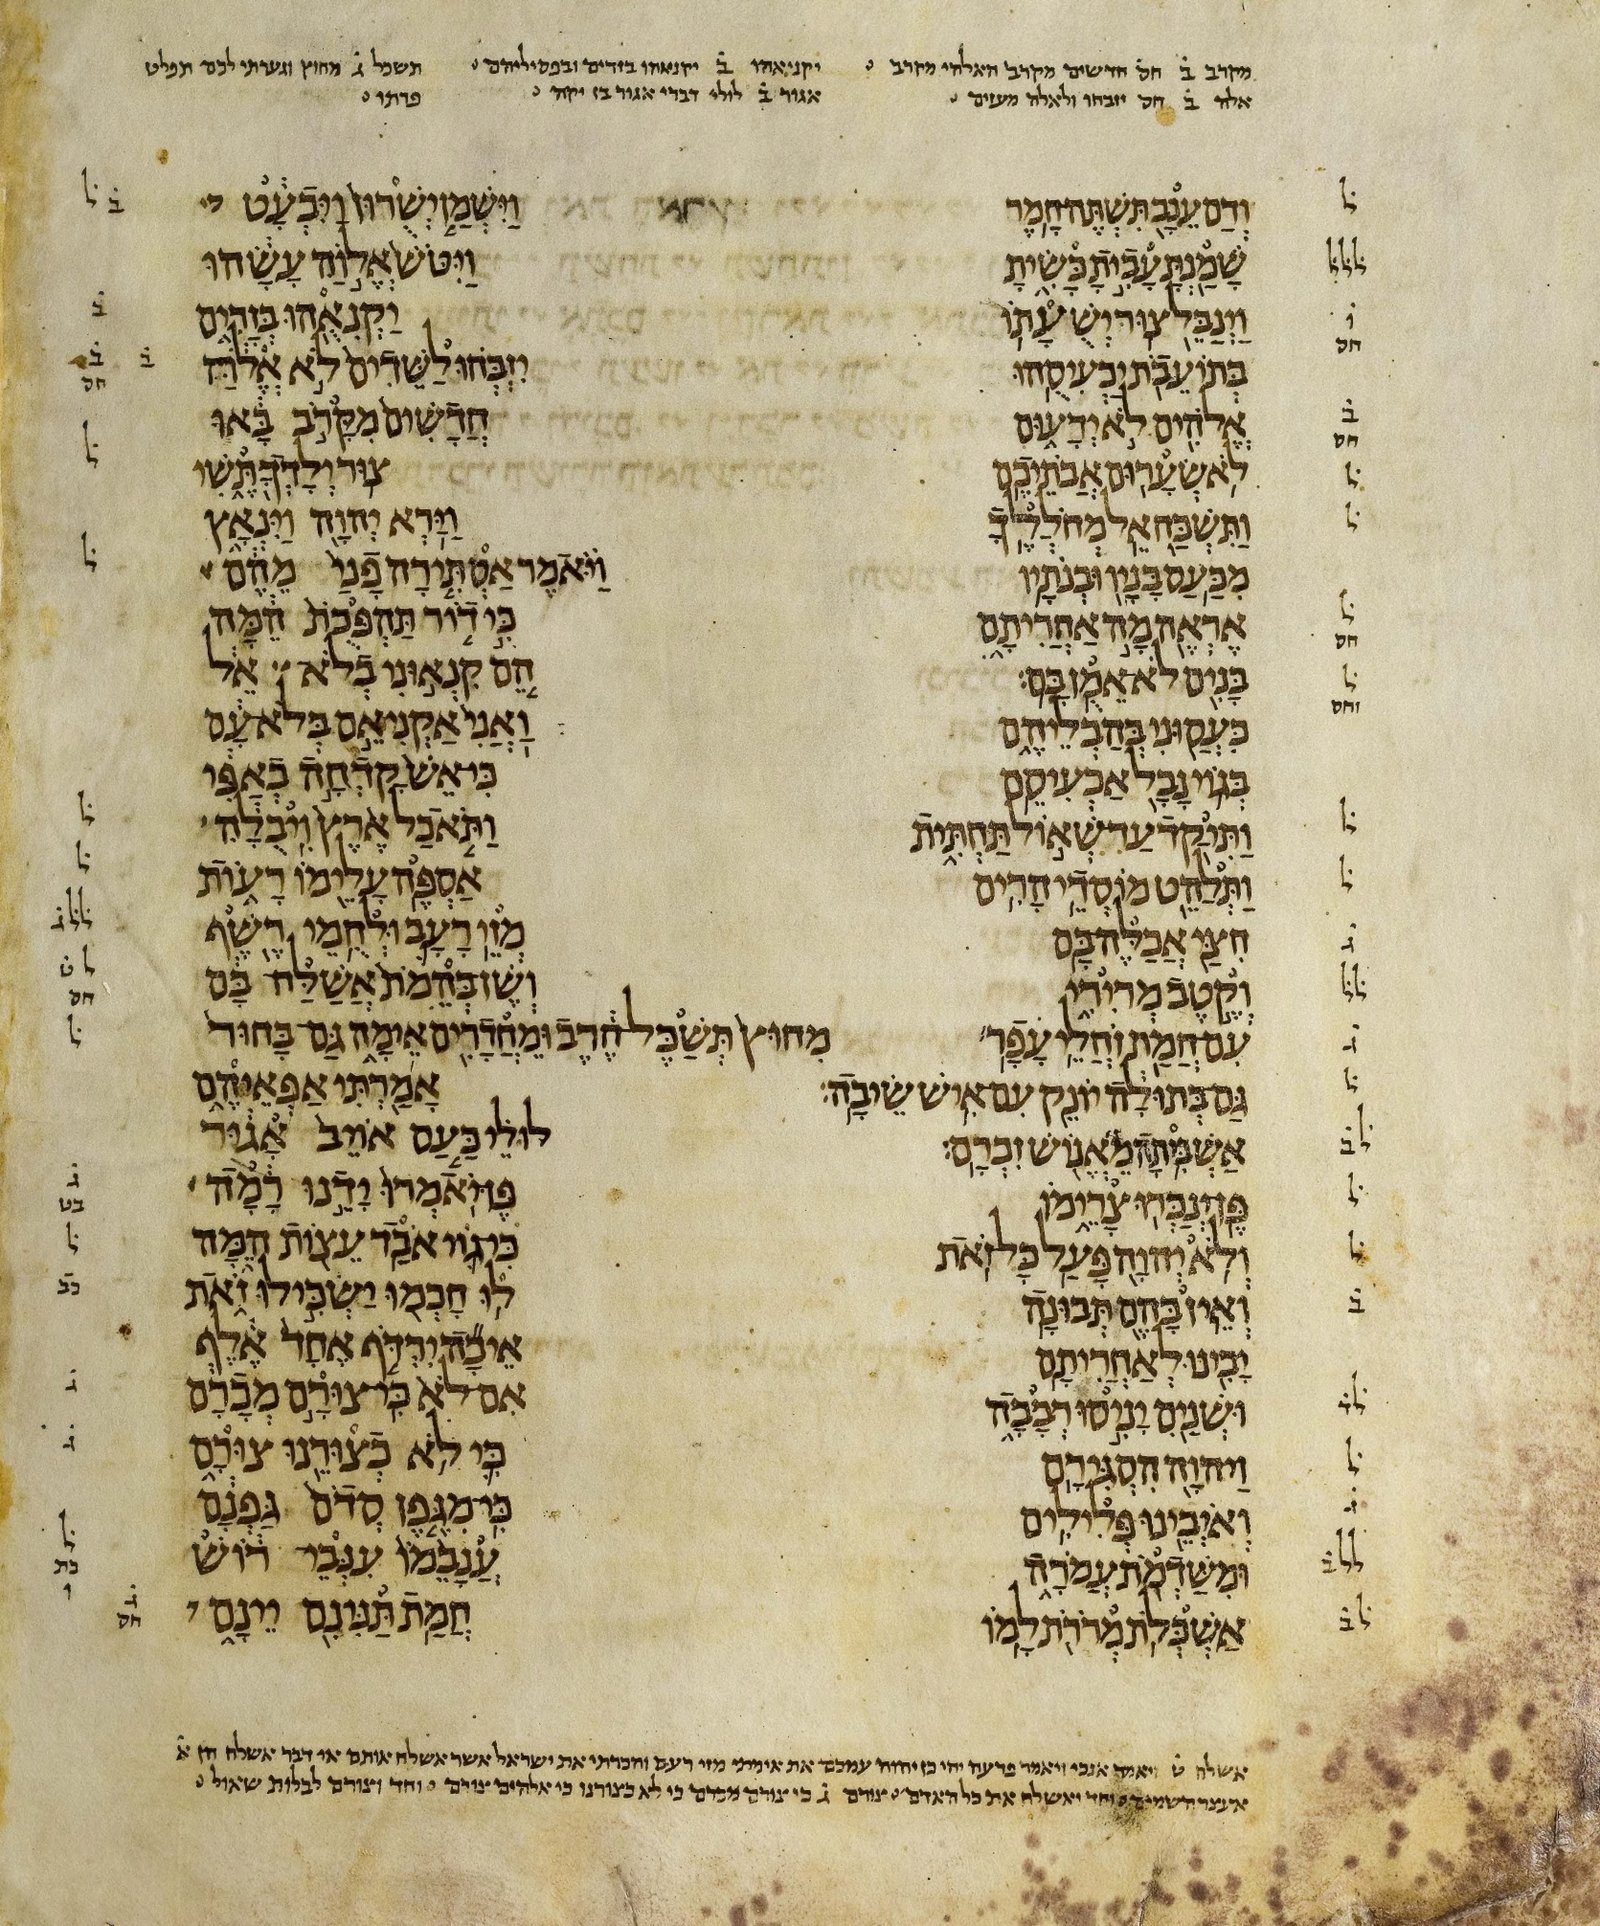 מקרב ב חס חדשים מקרב האלהי מקרב ∘ יקניאהו ב יקנאהו בזרים ובפסיליהם ∘ תשכל ג מחוץ וגערתי לכם תפלט
אלה ב חס יזבחו ולאלה מעזים ∘ אגור ב לולי דברי אגור בן יקה ∘ פרתו ∘
וְדַם עֵנָב תִּשְׁתֶּה חָמֶר וַיִּשְׁמַן יְשֻׁרוּן וַיִּבְעָט
שָׁמַנְתָּ עָבִיתָ כָּשִׂיתָ וַיִּטֹּשׁ אֱלוֹהַ עָשָׂהוּ
וַיְנַבֵּל צוּר יְשֻׁעָתוֹ יַקְנִאֻהוּ בְּזָרִים
בְּתוֹעֵבֹת יַכְעִיסֻהוּ יִזְבְּחוּ לַשֵּׁדִים לֹא אֱלֹהַ
אֱלֹהִים לֹא יְדָעוּם חֲדָשִׁים מִקָּרֹב בָּאוּ
לֹא שְׂעָרוּם אֲבֹתֵיכֶם צוּר יְלָדְךָ תֶּשִׁי
וַתִּשְׁכַּח אֵל מְחֹלְלֶךָ וַיַּרְא יְהוָה וַיִּנְאָץ
מִכַּעַס בָּנָיו וּבְנֹתָיו וַיֹּאמֶר אַסְתִּירָה פָנַי מֵהֶם
אֶרְאֶה מָה אַחֲרִיתָם כִּי דוֹר תַּהְפֻּכֹת הֵמָּה
בָּנִים לֹא אֵמֻן בָּם׃ הֵם קִנְאוּנִי בְלֹא אֵל
כִּעֲסוּנִי בְּהַבְלֵיהֶם וַאֲנִי אַקְנִיאֵם בְּלֹא עָם
בְּגוֹי נָבָל אַכְעִיסֵם כִּי אֵשׁ קָדְחָה בְאַפִּי
וַתִּיקַד עַד שְׁאוֹל תַּחְתִּית וַתֹּאכַל אֶרֶץ וִיבֻלָהּ
וַתְּלַהֵט מוֹסְדֵי הָרִים אַסְפֶּה עָלֵימוֹ רָעוֹת
חִצַּי אֲכַלֶּה בָּם מְזֵי רָעָב וּלְחֻמֵי רֶשֶׁף
וְקֶטֶב מְרִירִי וְשֶׁן בְּהֵמֹת אֲשַׁלַּח בָּם
עִם חֲמַת זֹחֲלֵי עָפָר מִחוּץ תְּשַׁכֶּל חֶרֶב וּמֵחֲדָרִים אֵימָה גַּם בָּחוּר
גַּם בְּתוּלָה יוֹנֵק עִם אִישׁ שֵׂיבָה׃ אָמַרְתִּי אַפְאֵיהֶם
אַשְׁבִּיתָה מֵאֱנוֹשׁ זִכְרָם׃ לוּלֵי כַּעַס אוֹיֵב אָגוּר
פֶּן יְנַכְּרוּ צָרֵימוֹ פֶּן יֹאמְרוּ יָדֵנוּ רָמָה
וְלֹא יְהוָה פָּעַל כָּל זֹאת כִּי גוֹי אֹבַד עֵצוֹת הֵמָּה
וְאֵין בָּהֶם תְּבוּנָה לוּ חָכְמוּ יַשְׂכִּילוּ זֹאת
יָבִינוּ לְאַחֲרִיתָם אֵיכָה יִרְדֹּף אֶחָד אֶלֶף
וּשְׁנַיִם יָנִיסוּ רְבָבָה אִם לֹא כִּי צוּרָם מְכָרָם
וַיהוָה הִסְגִּירָם כִּי לֹא כְצוּרֵנוּ צוּרָם
וְאֹיְבֵינוּ פְּלִילִים כִּי מִגֶּפֶן סְדֹם גַּפְנָם
וּמִשַּׁדְמֹת עֲמֹרָה עֲנָבֵמוֹ עִנְּבֵי רוֹשׁ
אַשְׁכְּלֹת מְרֹרֹת לָמוֹ חֲמַת תַּנִּינִם יֵינָם
אשלח ט ויאמר אנכי ויאמר פרעה יהי כן יהוה עמכם את אימתי מזי רעב וחברתי את ישראל אשר אשלח אותם או דבר אשלח הן א
אעצר השמים ∘ וחד ואשלח את כל האדם ∘ צורם ג כי צורם מכרם כי לא כצורנו כי אלהים צורם ∘ וחד וצורם לבלות שאול ∘